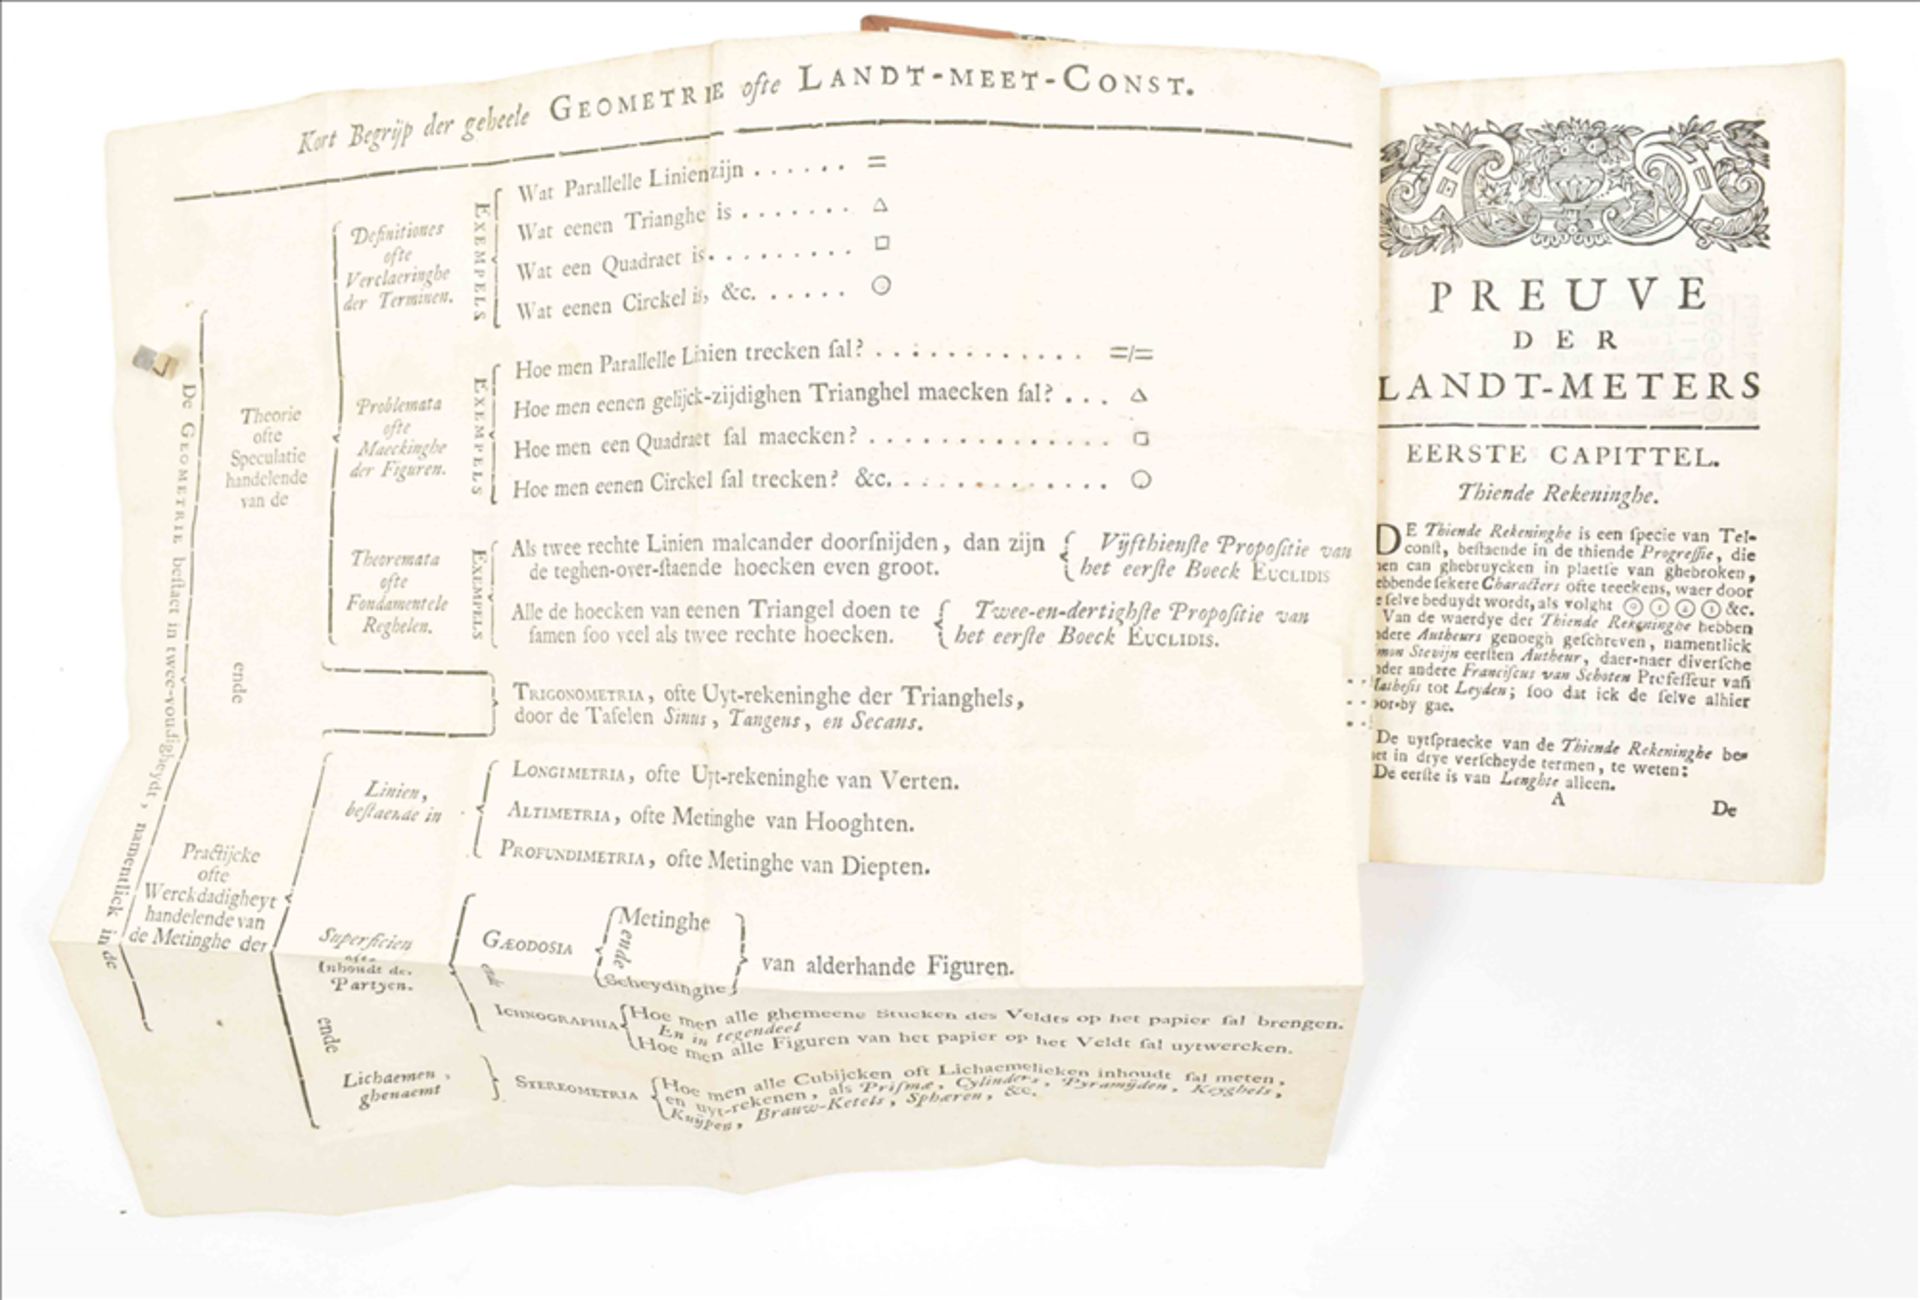 Kort Begrijp der geheele GEOMETRIE ofte LANDT-MEET-CONST.
De GEOMETRIE bestaet in twee-voudigheydt, namentlick in de
Theorie
ofte
Speculatie
handelende
van de
ende
Definitiones
ofte
Verclaeringhe
der Terminen.
EXEMPELS
Wat Parallelle Linien zijn . . . . . . =
Wat eenen Trianghe is . . . . . . . △
Wat een Quadraet is. . . . . . . . . □
Wat eenen Circkel is, &c. . . . . . ○
Problemata
ofte
Maeckinghe
der Figuren.
EXEMPELS
Hoe men Parallelle Linien trecken ſal? . . . . . . . . . . . . =/=
Hoe men eenen gelijck-zijdighen Trianghel maecken ſal? . . . △
Hoe men een Quadraet ſal maecken? . . . . . . . . . . . . . . □
Hoe men eenen Circkel ſal trecken? &c. . . . . . . . . . . . . . ○
Theoremata
ofte
Fondamentele
Reghelen.
EXEMPELS
Als twee rechte Linien malcander doorſnijden, dan zijn
de teghen-over-ſtaende hoecken even groot.
Vijfthienſte Propoſitie van
het eerſte Boeck EUCLIDIS
Alle de hoecken van eenen Triangel doen te
ſamen ſoo veel als twee rechte hoecken.
Twee-en-dertighſte Propoſitie van
het eerſte Boeck EUCLIDIS.
TRIGONOMETRIA, ofte Uyt-rekeninghe der Trianghels,
door de Tafelen Sinus, Tangens, en Secans.
Practijcke
ofte
Werckdadigheyt
handelende van
de Metinghe der
Linien,
beſtaende in
LONGIMETRIA, ofte Uyt-rekeninghe van Verten.
ALTIMETRIA, ofte Metinghe van Hooghten.
PROFUNDIMETRIA, ofte Metinghe van Diepten.
Superficien
ofte
Inhoudt der
Partyen.
GÆODOSIA
Metinghe
ende
Scheydinghe
van alderhande Figuren.
ende
ICHNOGRAPHIA
Hoe men alle ghemeene Stucken des Veldts op het papier ſal brengen.
En in tegendeel
Hoe men alle Figuren van het papier op het Veldt ſal uytwercken.
ende
Lichaemen,
ghenaemt
STEREOMETRIA
Hoe men alle Cubijcken oft Lichaemelicken inhoudt ſal meten,
en uyt-rekenen, als Priſmæ, Cylinders, Pyramijden, Keyghels,
Kuijpen, Brauw-Ketels, Sphæren, &c.
PREUVE
DER
LANDT-METERS
EERSTE CAPITTEL.
Thiende Rekeninghe.
DE Thiende Rekeninghe is een ſpecie van Tel-
conſt, beſtaende in de thiende Progreſſie, die
men can ghebruycken in plaetſe van ghebroken,
hebbende ſekere Characters ofte teeckens, waer door
de ſelve beduydt wordt, als volght ⓪ ① ② ③ &c.
Van de waerdye der Thiende Rekeninghe hebben
andere Autheurs genoegh geſchreven, namentlick
Simon Stevijn eerſten Autheur, daer-naer diverſche
onder andere Franciſcus van Schoten Profeſſeur van
Matheſis tot Leyden; ſoo dat ick de ſelve alhier
voor-by gae.
De uytſpraecke van de Thiende Rekeninghe be-
ſtaet in drye verſcheyde termen, te weten:
De eerſte is van Lenghte alleen.
A
De